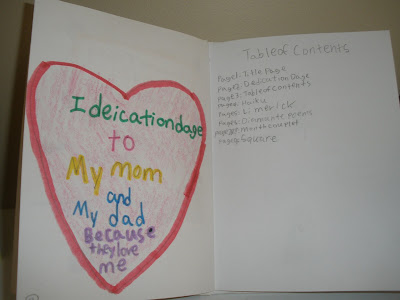 I deicationdage
to
My mom
and
My dad
Because
they love
me
Table of Contents
Page1: Title Page
Page2: Dedication Page
Page3: Table of Contents
Page4: Haiku
Page5: Limerick
Page6: Diamante Poems
Month
Page